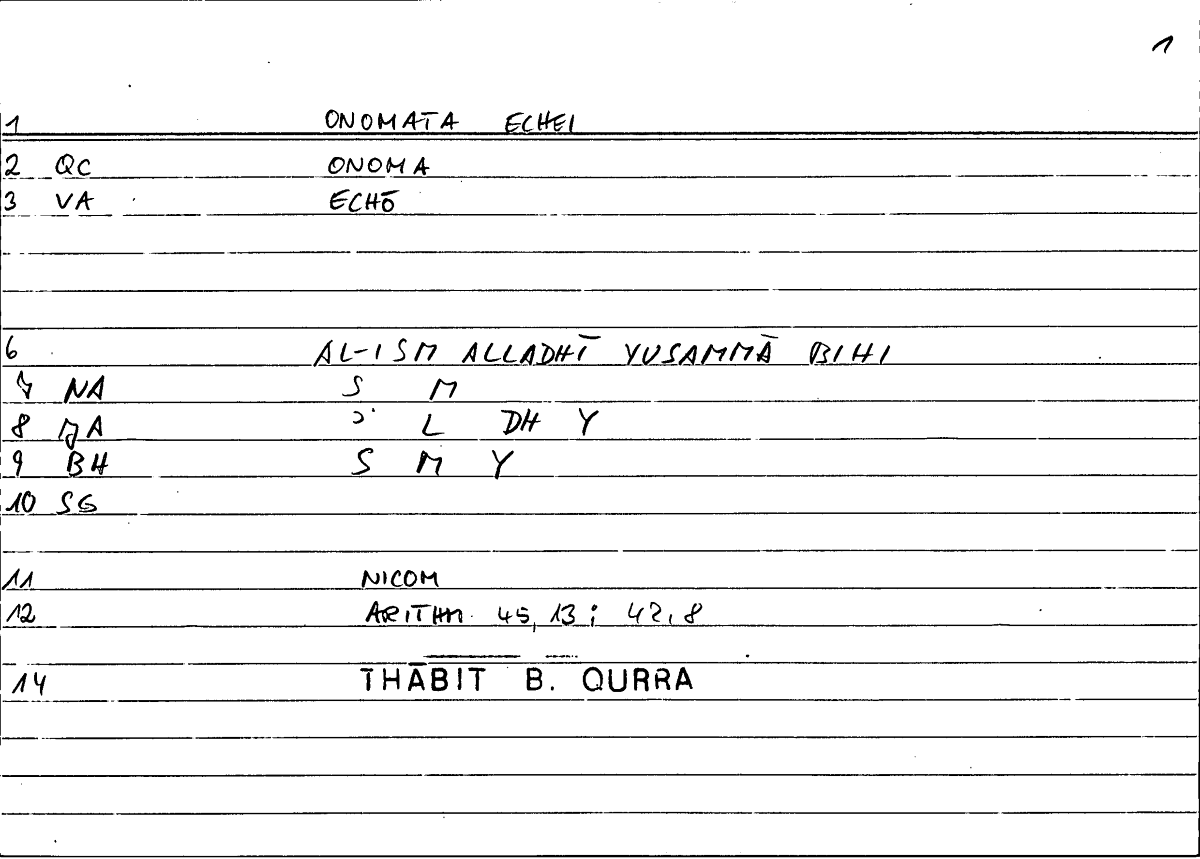 1
1 ONOMATA ECHEI
2 QC ONOMA
3 VA ECHŌ
6 AL-ISM ALLADHĪ YUSAMMĀ BIHI
7 NA S M
8 JA ɔ L DH Y
9 BH S M Y
10 SG
11 NICOM
12 ARITHM. 45,13; 42,8
14 THĀBIT B. QURRA